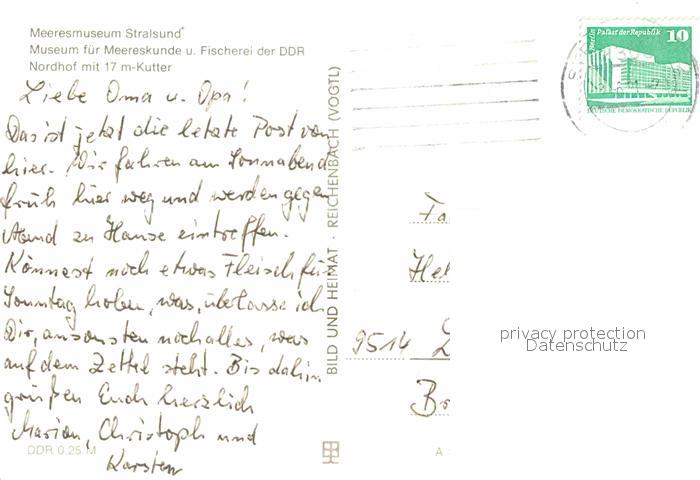 Meeresmuseum Stralsund
Museum für Meereskunde u. Fischerei der DDR
Nordhof mit 17 m-Kutter
Liebe Oma u. Opa!
Das ist jetzt die letzte Post von
hier. Wir fahren am Sonnabend
früh hier weg und werden gegen
Abend zu Hause eintreffen.
Könnest noch etwas Fleisch für
Sonntag holen, was, überlasse ich
Dir, ansonsten noch alles, was
auf dem Zettel steht. Bis dahin
grüßen Euch herzlich
Marion, Christoph und
Karsten
DDR 0.25 M
BILD UND HEIMAT · REICHENBACH (VOGTL)
Berlin Palast der Republik
10
DEUTSCHE DEMOKRATISCHE REPUBLIK
Fa
Hel
9514
Br
privacy protection
Datenschutz
A